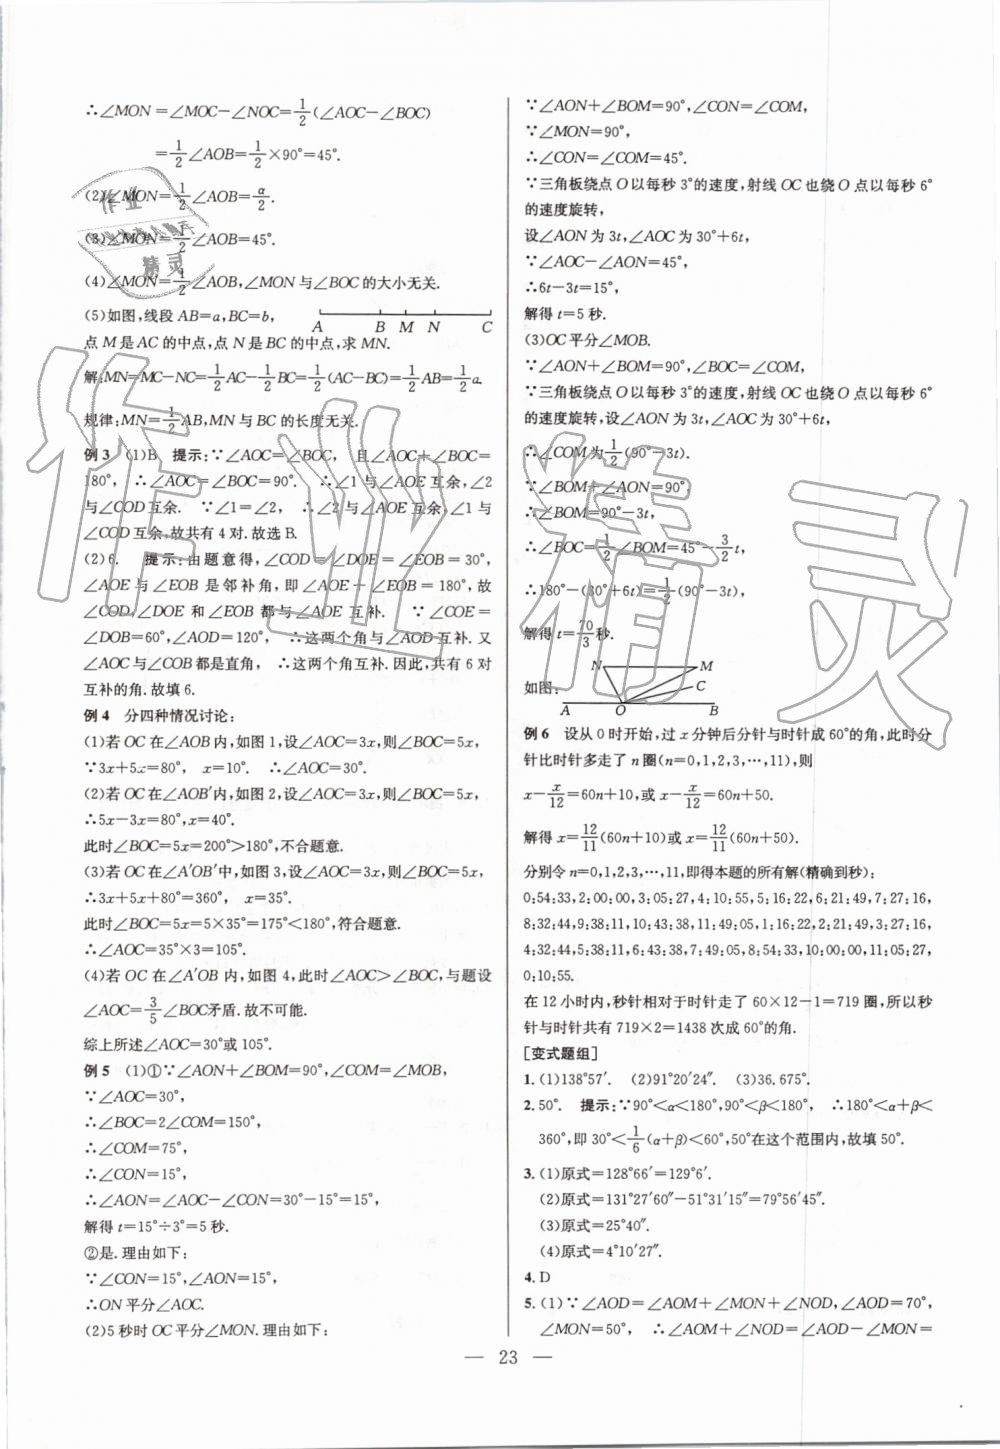 ∴∠MON=∠MOC-∠NOC=1/2(∠AOC-∠BOC)
=1/2∠AOB=1/2×90°=45°.
(2)∠MON=1/2∠AOB=α/2.
(3)∠MON=1/2∠AOB=45°.
(4)∠MON=1/2∠AOB,∠MON与∠BOC的大小无关.
(5)如图,线段AB=a,BC=b,
A B M N C
点M是AC的中点,点N是BC的中点,求MN.
解:MN=MC-NC=1/2AC-1/2BC=1/2(AC-BC)=1/2AB=1/2a.
规律:MN=1/2AB,MN与BC的长度无关.
例3 (1)B 提示:∵∠AOC=∠BOC, 且∠AOC+∠BOC=
180°, ∴∠AOC=∠BOC=90°. ∴∠1与∠AOE互余,∠2
与∠COD互余. ∵∠1=∠2, ∴∠2与∠AOE互余,∠1与
∠COD互余,故共有4对.故选B.
(2)6. 提示:由题意得,∠COD=∠DOE=∠EOB=30°,
∠AOE与∠EOB是邻补角,即∠AOE+∠EOB=180°,故
∠COD,∠DOE和∠EOB都与∠AOE互补. ∵∠COE=
∠DOB=60°,∠AOD=120°, ∴这两个角与∠AOD互补.又
∠AOC与∠COB都是直角, ∴这两个角互补.因此,共有6对
互补的角.故填6.
例4 分四种情况讨论:
(1)若OC在∠AOB内,如图1,设∠AOC=3x,则∠BOC=5x,
∵3x+5x=80°, x=10°. ∴∠AOC=30°.
(2)若OC在∠AOB′内,如图2,设∠AOC=3x,则∠BOC=5x,
∴5x-3x=80°,x=40°.
此时∠BOC=5x=200°>180°,不合题意.
(3)若OC在∠A′OB′中,如图3,设∠AOC=3x,则∠BOC=5x,
∴3x+5x+80°=360°, x=35°.
此时∠BOC=5x=5×35°=175°<180°,符合题意.
∴∠AOC=35°×3=105°.
(4)若OC在∠A′OB内,如图4,此时∠AOC>∠BOC,与题设
∠AOC=3/5∠BOC矛盾.故不可能.
综上所述∠AOC=30°或105°.
例5 (1)①∵∠AON+∠BOM=90°,∠COM=∠MOB,
∵∠AOC=30°,
∴∠BOC=2∠COM=150°,
∴∠COM=75°,
∴∠CON=15°,
∴∠AON=∠AOC-∠CON=30°-15°=15°,
解得t=15°÷3°=5秒.
②是.理由如下:
∵∠CON=15°,∠AON=15°,
∴ON平分∠AOC.
(2)5秒时OC平分∠MON.理由如下:
∵∠AON+∠BOM=90°,∠CON=∠COM,
∵∠MON=90°,
∴∠CON=∠COM=45°.
∵三角板绕点O以每秒3°的速度,射线OC也绕O点以每秒6°
的速度旋转,
设∠AON为3t,∠AOC为30°+6t,
∵∠AOC-∠AON=45°,
∴6t-3t=15°,
解得t=5秒.
(3)OC平分∠MOB.
∵∠AON+∠BOM=90°,∠BOC=∠COM,
∵三角板绕点O以每秒3°的速度,射线OC也绕O点以每秒6°
的速度旋转,设∠AON为3t,∠AOC为30°+6t,
∴∠COM为1/2(90°-3t).
∵∠BOM+∠AON=90°
∴∠BOM=90°-3t,
∴∠BOC=1/2∠BOM=45°-3/2t,
∴180°-(30°+6t)=1/2(90°-3t),
解得t=70/3秒.
N M
C
如图:
A O B
例6 设从0时开始,过x分钟后分针与时针成60°的角,此时分
针比时针多走了n圈(n=0,1,2,3,…,11),则
x-x/12=60n+10,或x-x/12=60n+50.
解得x=12/11(60n+10)或x=12/11(60n+50).
分别令n=0,1,2,3,…,11,即得本题的所有解(精确到秒):
0:54:33,2:00:00,3:05:27,4:10:55,5:16:22,6:21:49,7:27:16,
8:32:44,9:38:11,10:43:38,11:49:05,1:16:22,2:21:49,3:27:16,
4:32:44,5:38:11,6:43:38,7:49:05,8:54:33,10:00:00,11:05:27,
0:10:55.
在12小时内,秒针相对于时针走了60×12-1=719圈,所以秒
针与时针共有719×2=1438次成60°的角.
[变式题组]
1.(1)138°57′. (2)91°20′24″. (3)36.675°.
2.50°. 提示:∵90°<α<180°,90°<β<180°, ∴180°<α+β<
360°,即30°<1/6(α+β)<60°,50°在这个范围内,故填50°.
3.(1)原式=128°66′=129°6′.
(2)原式=131°27′60″-51°31′15″=79°56′45″.
(3)原式=25°40″.
(4)原式=4°10′27″.
4.D
5.(1)∵∠AOD=∠AOM+∠MON+∠NOD,∠AOD=70°,
∠MON=50°, ∴∠AOM+∠NOD=∠AOD-∠MON=
— 23 —
作业精灵
作业
精灵